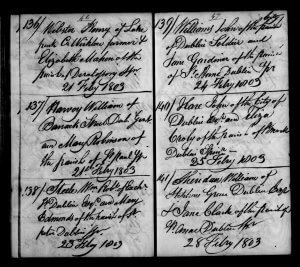 136/ Webster Henry of Lake
Park Co Wicklow farmer &
Elizabeth Mahon of the
Parish of Spr
21 Feby 1803
137/ Harvey William of
Barrack Street Dub Gent
and Mary Robinson of
the parish of St Paul Spr
21st Feby 1803
138/ Steele Wm
St Dublin Esqr and Mary
Edmonds of the parish of St
Peter Dublin Spr
23 Feby 1803
139/ Williams John of the
of Dublin Soldier and
Jane Gardener of the parish
of St Anne Dublin Spr
24 Feby 1803
140/ Hare John of the City of
Dublin Esqr and Eliza
Croly of the parish of St Mark
Dublin
25 Feby 1803
141/ Sheridan William of
Stephens Green Dublin Esqr
& Jane Clark of the parish of
St Anne Dublin Spr
28 Feby 1803